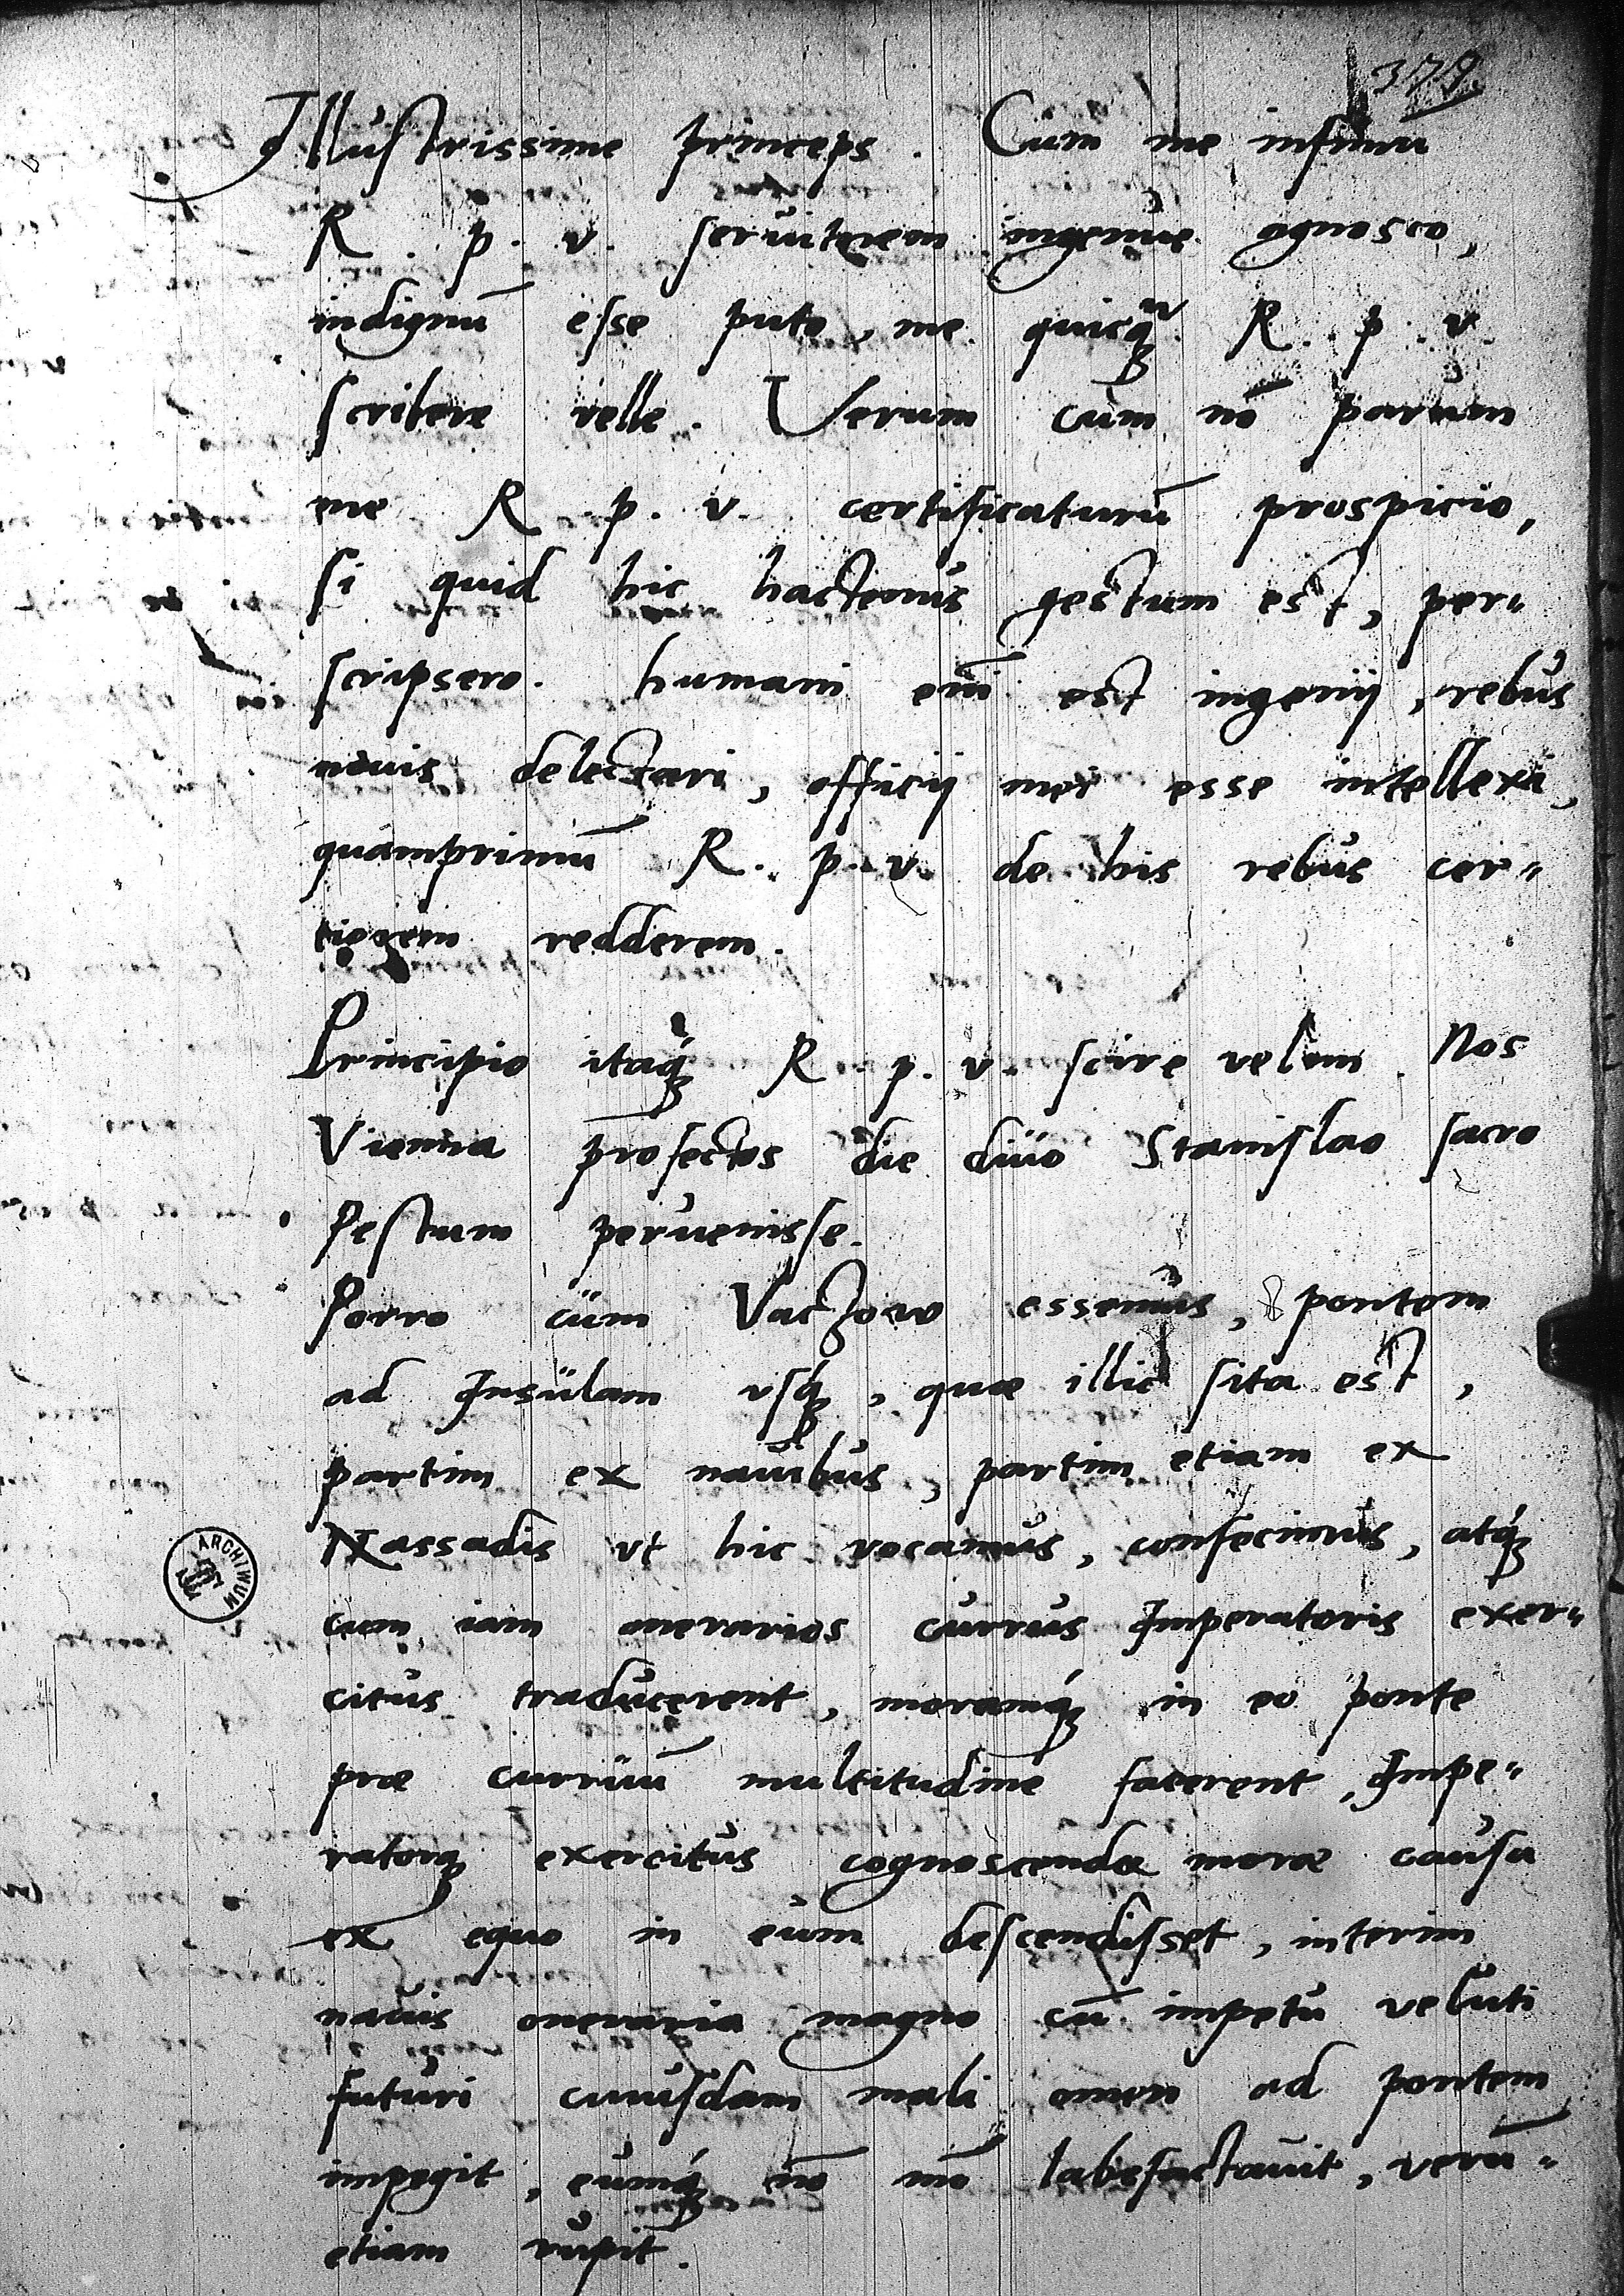 379
Illustrissime princeps. Cum me infimū
R. p. v. seruitorem ingenue agnosco,
indignū esse puto, me quicq̄ R. p. v.
scribere velle. Verum cum nō parum
me R. p. v. certificaturū prospicio,
si quid hic hactenus gestum est, per„
scripsero. humani em̄ est ingenij, rebus
nouis delectari, officij mei esse intellexi,
quamprimū R. p. v. de his rebus cer„
tiorem redderem.
Principio itaq́ R. p. v. scire velim. Nos
Vienna profectos die diuo Stanislao sacro
Pestum peruenisse.
Porro cum Vaczowo essemus, pontem
ad Insulam vsq́, quæ illic sita est,
partim ex nauibus, partim etiam ex
Nassadis vt hic vocamus, confecimus, atq́
cum iam onerarios currus Imperatoris exer„
citus traducerent, moramq́ in eo ponte
præ curruū multitudine facerent, Impe„
ratorq́ exercitus cognoscendæ moræ causa
ex equo in eum descendisset, interim
nauis oneraria magno cū impetu veluti
futuri cuiusdam mali omen ad pontem
impegit, eumq́ nō mō labefactauit, verū„
etiam rupit.
ARCHIWUM